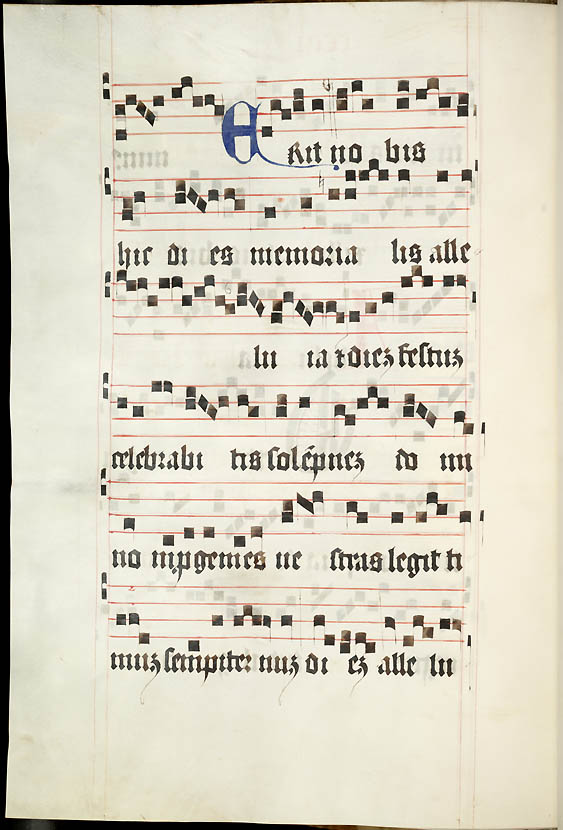 ERit no bis
hic di es memoria lis alle
lu ia ⁊ diez festuz
celebrabi tis solēpnez do mi
no in pgenies ve stras legit ti
muz sempiter nuz di ez alle lu